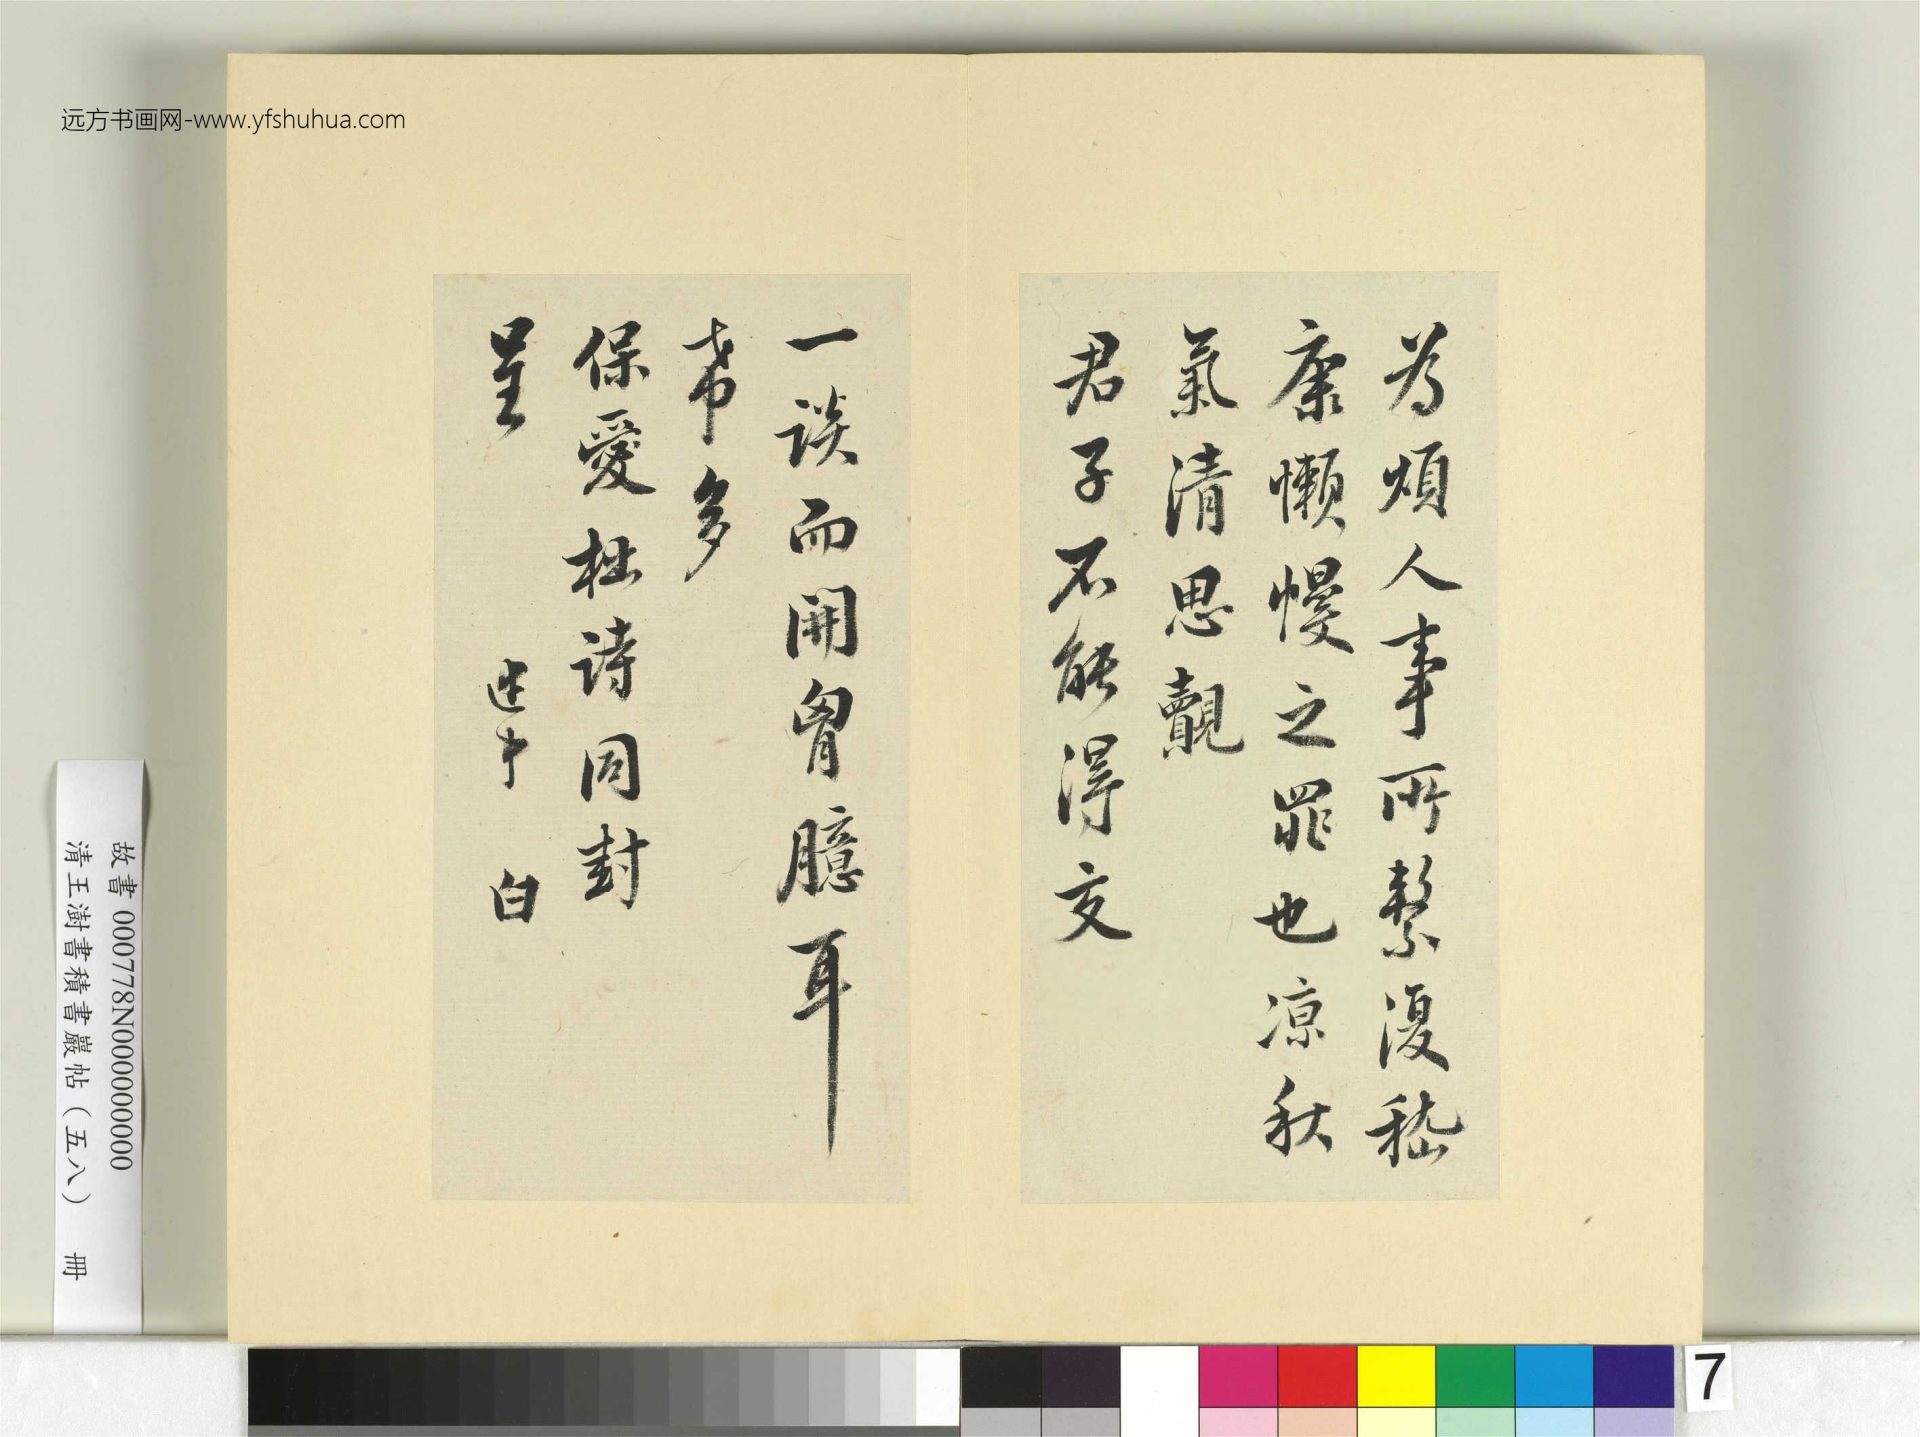 远方书画网-www.yfshuhua.com
為煩人事所繫復嵇
康懶慢之罪也凉秋
氣清思覿
君子不能得交
一談而開胷臆耳
希多
保愛拙詩同封
呈 建中 白
故書 000778N000000000
清王澍書積書巖帖（五八） 冊
7